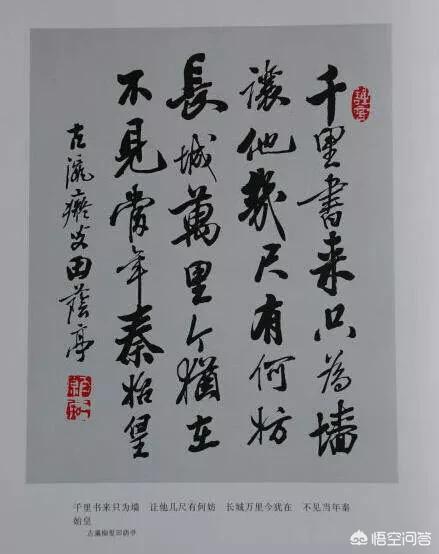 千里書来只為墙
讓他幾尺有何妨
長城萬里今猶在
不見當年秦始皇
古瀛癡叟田蔭亭
千里书来只为墙 让他几尺有何妨 长城万里今犹在 不见当年秦
始皇
悟空问答